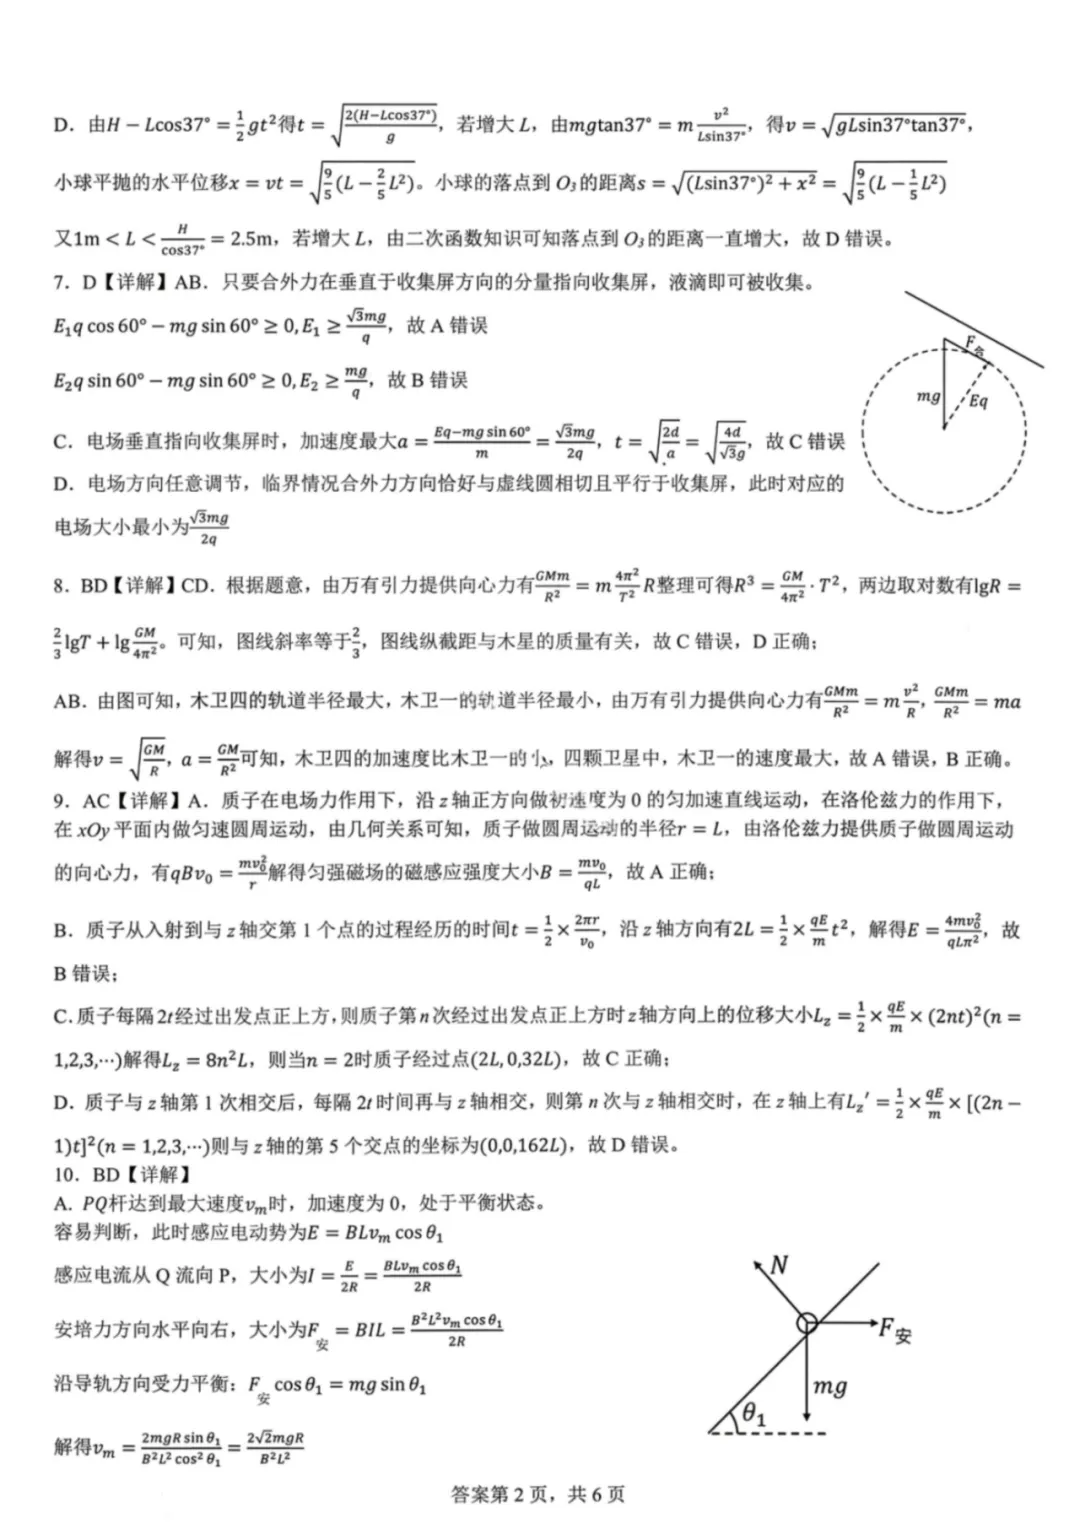 D．由H − Lcos37° = \frac{1}{2}gt²得t = \sqrt{\frac{2(H−Lcos37°)}{g}}，若增大 L，由mgtan37° = m\frac{v²}{Lsin37°}，得v = \sqrt{gLsin37°tan37°}，
小球平抛的水平位移x = vt = \sqrt{\frac{9}{5}(L − \frac{2}{5}L²)}。小球的落点到 O₃的距离s = \sqrt{(Lsin37°)² + x²} = \sqrt{\frac{9}{5}(L − \frac{1}{5}L²)}
又1m < L < \frac{H}{cos37°} = 2.5m，若增大 L，由二次函数知识可知落点到 O₃的距离一直增大，故 D 错误。
7．D【详解】AB．只要合外力在垂直于收集屏方向的分量指向收集屏，液滴即可被收集。
E₁q cos 60° − mg sin 60° ≥ 0, E₁ ≥ \frac{\sqrt{3}mg}{q}，故 A 错误
E₂q sin 60° − mg sin 60° ≥ 0, E₂ ≥ \frac{mg}{q}，故 B 错误
C．电场垂直指向收集屏时，加速度最大a = \frac{Eq−mg sin 60°}{m} = \frac{\sqrt{3}mg}{2q}，t = \sqrt{\frac{2d}{a}} = \sqrt{\frac{4d}{\sqrt{3}g}}，故 C 错误
D．电场方向任意调节，临界情况合外力方向恰好与虚线圆相切且平行于收集屏，此时对应的
电场大小最小为\frac{\sqrt{3}mg}{2q}
F合
mg
Eq
8．BD【详解】CD．根据题意，由万有引力提供向心力有\frac{GMm}{R²} = m\frac{4π²}{T²}R整理可得R³ = \frac{GM}{4π²}·T²，两边取对数有lgR =
\frac{2}{3}lgT + lg\frac{GM}{4π²}。可知，图线斜率等于\frac{2}{3}，图线纵截距与木星的质量有关，故 C 错误，D 正确；
AB．由图可知，木卫四的轨道半径最大，木卫一的轨道半径最小，由万有引力提供向心力有\frac{GMm}{R²} = m\frac{v²}{R}，\frac{GMm}{R²} = ma
解得v = \sqrt{\frac{GM}{R}}，a = \frac{GM}{R²}可知，木卫四的加速度比木卫一的小，四颗卫星中，木卫一的速度最大，故 A 错误，B 正确。
9．AC【详解】A．质子在电场力作用下，沿 z 轴正方向做初速度为 0 的匀加速直线运动，在洛伦兹力的作用下，
在 xOy 平面内做匀速圆周运动，由几何关系可知，质子做圆周运动的半径r = L，由洛伦兹力提供质子做圆周运动
的向心力，有qBv₀ = \frac{mv₀²}{r}解得匀强磁场的磁感应强度大小B = \frac{mv₀}{qL}，故 A 正确；
B．质子从入射到与 z 轴交第 1 个点的过程经历的时间t = \frac{1}{2} × \frac{2πr}{v₀}，沿 z 轴方向有2L = \frac{1}{2} × \frac{qE}{m}t²，解得E = \frac{4mv₀²}{qLπ²}，故
B 错误；
C.质子每隔2t经过出发点正上方,则质子第n次经过出发点正上方时z轴方向上的位移大小L_z = \frac{1}{2} × \frac{qE}{m} × (2nt)²(n =
1,2,3,⋯)解得L_z = 8n²L，则当n = 2时质子经过点(2L, 0,32L)，故 C 正确；
D．质子与 z 轴第 1 次相交后，每隔 2t 时间再与 z 轴相交，则第 n 次与 z 轴相交时，在 z 轴上有L_z′ = \frac{1}{2} × \frac{qE}{m} × [(2n −
1)t]²(n = 1,2,3,⋯)则与 z 轴的第 5 个交点的坐标为(0,0,162L)，故 D 错误。
10．BD【详解】
A. PQ杆达到最大速度v_m时，加速度为 0，处于平衡状态。
容易判断，此时感应电动势为E = BLv_m cos θ₁
感应电流从 Q 流向 P，大小为I = \frac{E}{2R} = \frac{BLv_m cos θ₁}{2R}
安培力方向水平向右，大小为F安 = BIL = \frac{B²L²v_m cos θ₁}{2R}
沿导轨方向受力平衡：F安 cos θ₁ = mg sin θ₁
解得v_m = \frac{2mgR sin θ₁}{B²L² cos² θ₁} = \frac{2\sqrt{2}mgR}{B²L²}
N
F安
mg
θ₁
答案第 2 页，共 6 页